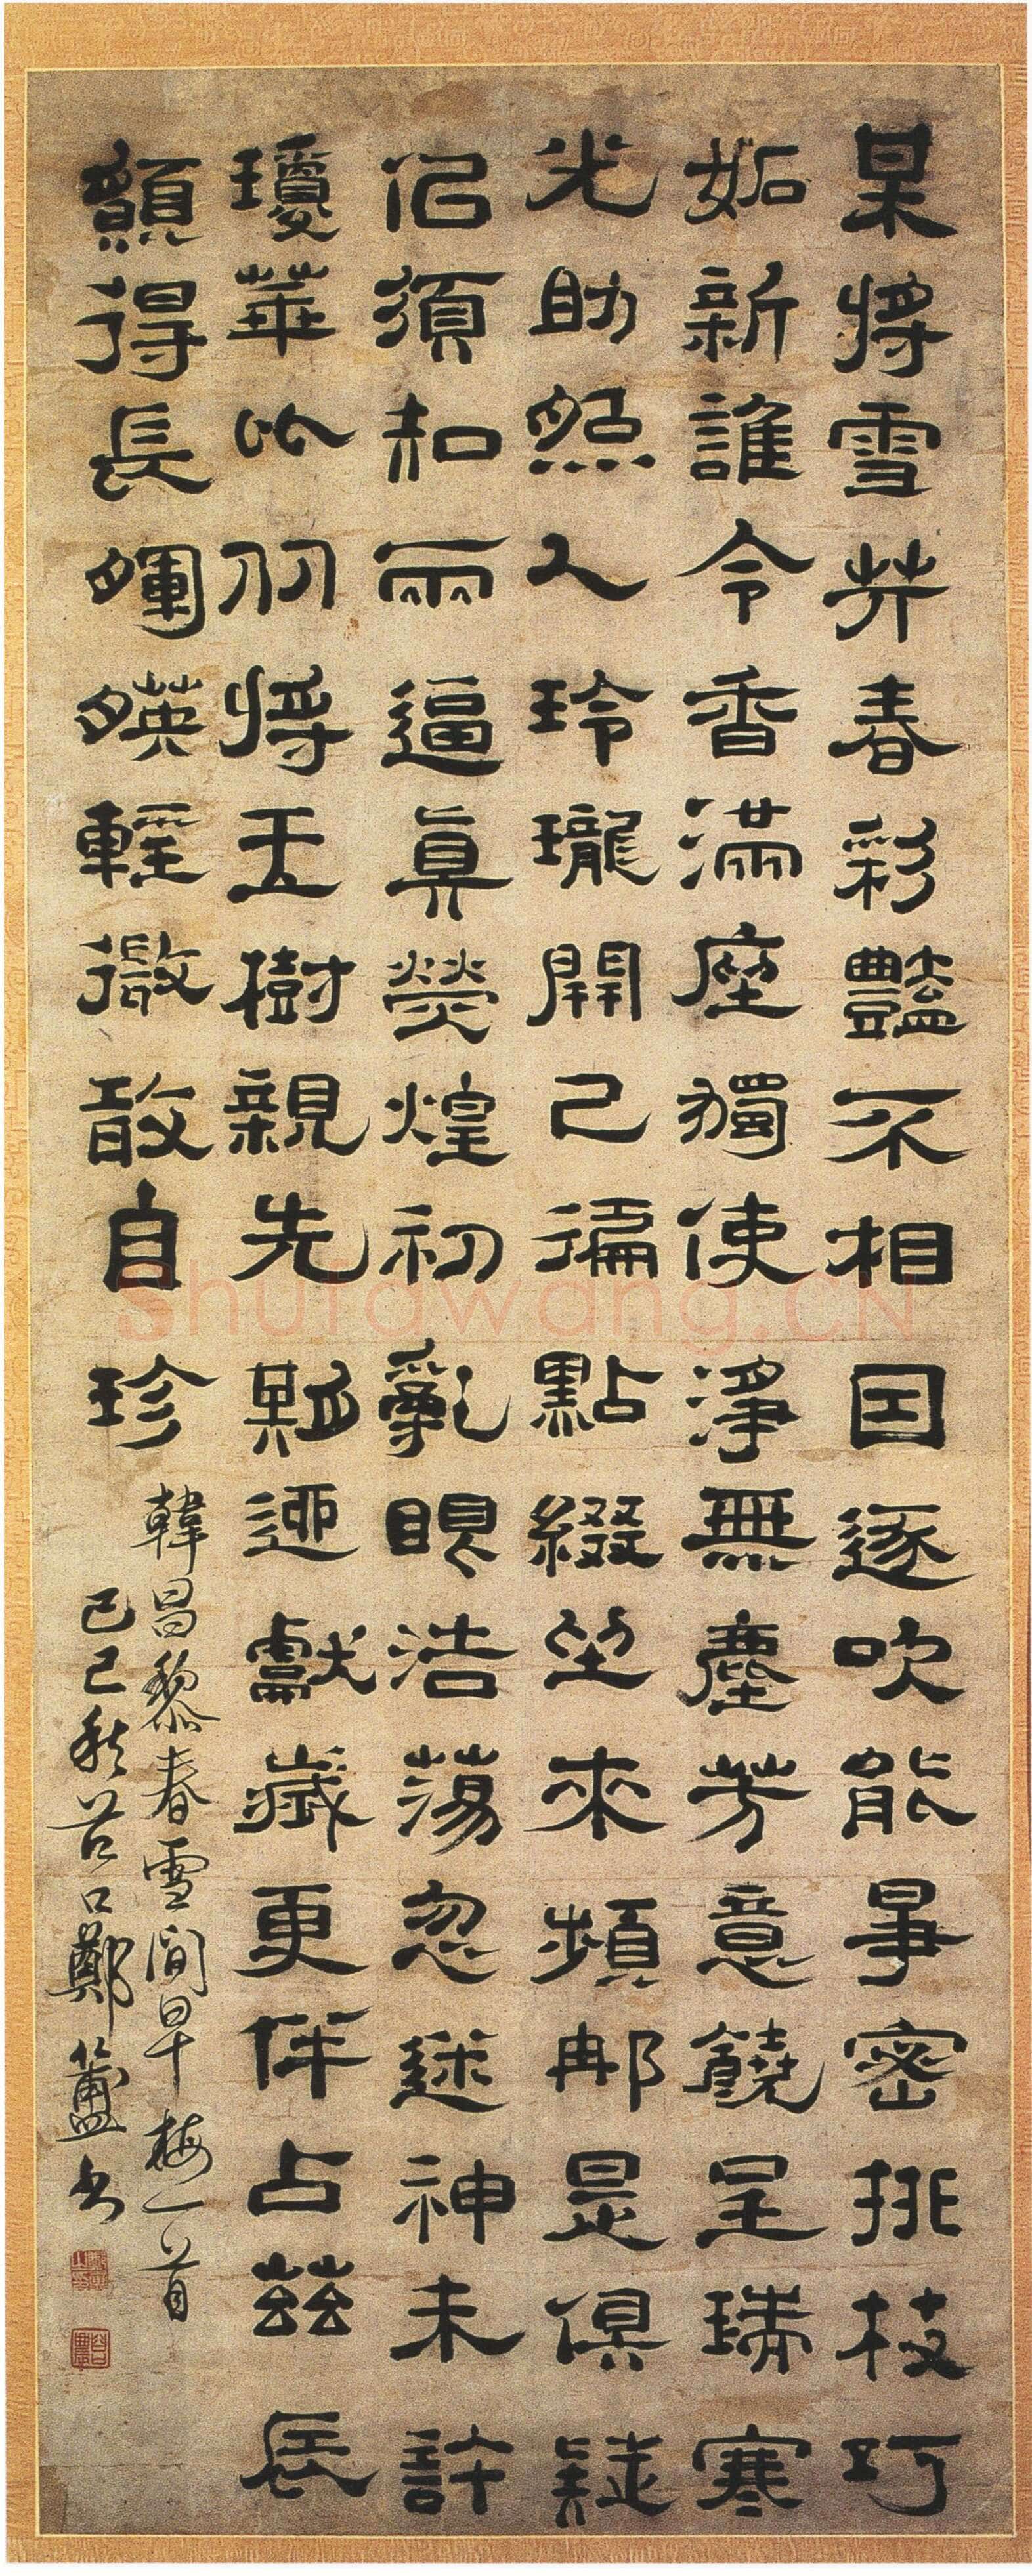 某將雪共春彩豔不相因逐吹能爭密排枝巧
妬新誰令香滿座獨使淨無塵芳意饒呈瑞寒
光助照人玲瓏開已徧點綴坐來頻那是俱疑
佀須知兩逼眞熒煌初亂眼浩蕩忽迷神未許
瓊華比从將玉樹親先期迎獻歲更伴占茲辰
顠得長暉暎輕微敢自珍
韓昌黎春雪間早梅一首
己巳秋谷口鄭簠書
Shufawang.CN